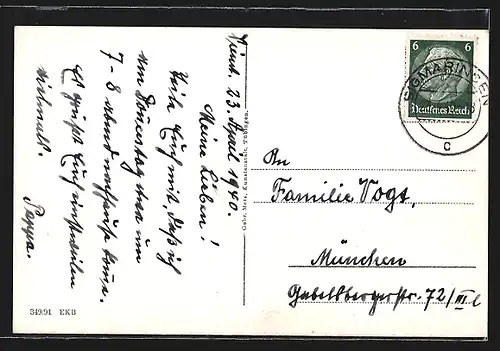 den 23. April 1940.
Meine Lieben!
Teile Euch mit, daß ich
am Donnerstag etwa um
7-8 abend nachhause komme.
Es grüßt Euch einstweilen
vielmals.
Pappa.
Gebr. Metz, Kunstanstalt, Tübingen.
6 6
Deutsches Reich
SIGMARINGEN
c
An
Familie Vogt,
München
Gabelsbergerstr. 72/III l
349/91 EKB